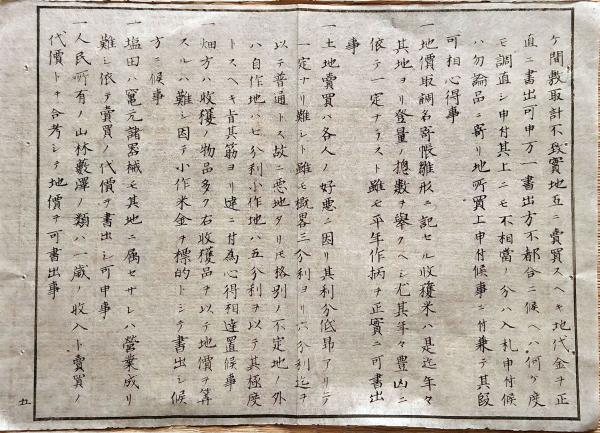 ケ間敷取計不致實地互ニ賣買スヘキ地代金ヲ正
直ニ書出可申万一書出方不都合ニ候ヘハ何ケ度
モ調直シ申付其上ニモ不相當ノ分ハ入札申付候
ハ勿論品ニ寄リ地所買上申付候事ニ付兼テ其段
可相心得事
一地價取調名寄帳雛形ニ記セル收穫米ハ是迄年々
其地ヨリ登量ノ摠數ヲ擧クヘシ尤其年々豊凶ニ
依テ一定ナラスト雖モ平年作柄ヲ正實ニ可書出
事
一土地賣買ハ各人ノ好悪ニ因リ其利分低昂アリテ
一定ナリ難シト雖モ概畧三分利ヨリ六分利迄ヲ
以テ普通トス故ニ悪地タリ圧格別ノ不定地ノ外
ハ自作地ハ七分利小作地ハ五分利ヲ以テ其極度
トスヘキ旨其筋ヨリ達ニ付為心得相達置候事
一畑方ハ收穫ノ物品多ク右收穫品ヲ以テ地價ヲ算
スルハ難シ因テ小作米金ヲ標的トシテ書出シ候
方ニ候事
一塩田ハ竃元諸器械モ其地ニ属セサレハ營業成リ
難シ依テ賣買ノ代價ヲ書出シ可申事
一人民所有ノ山林藪澤ノ類ハ一歳ノ收入ト賣買ノ
代價トヲ合考シテ地價ヲ可書出事
五